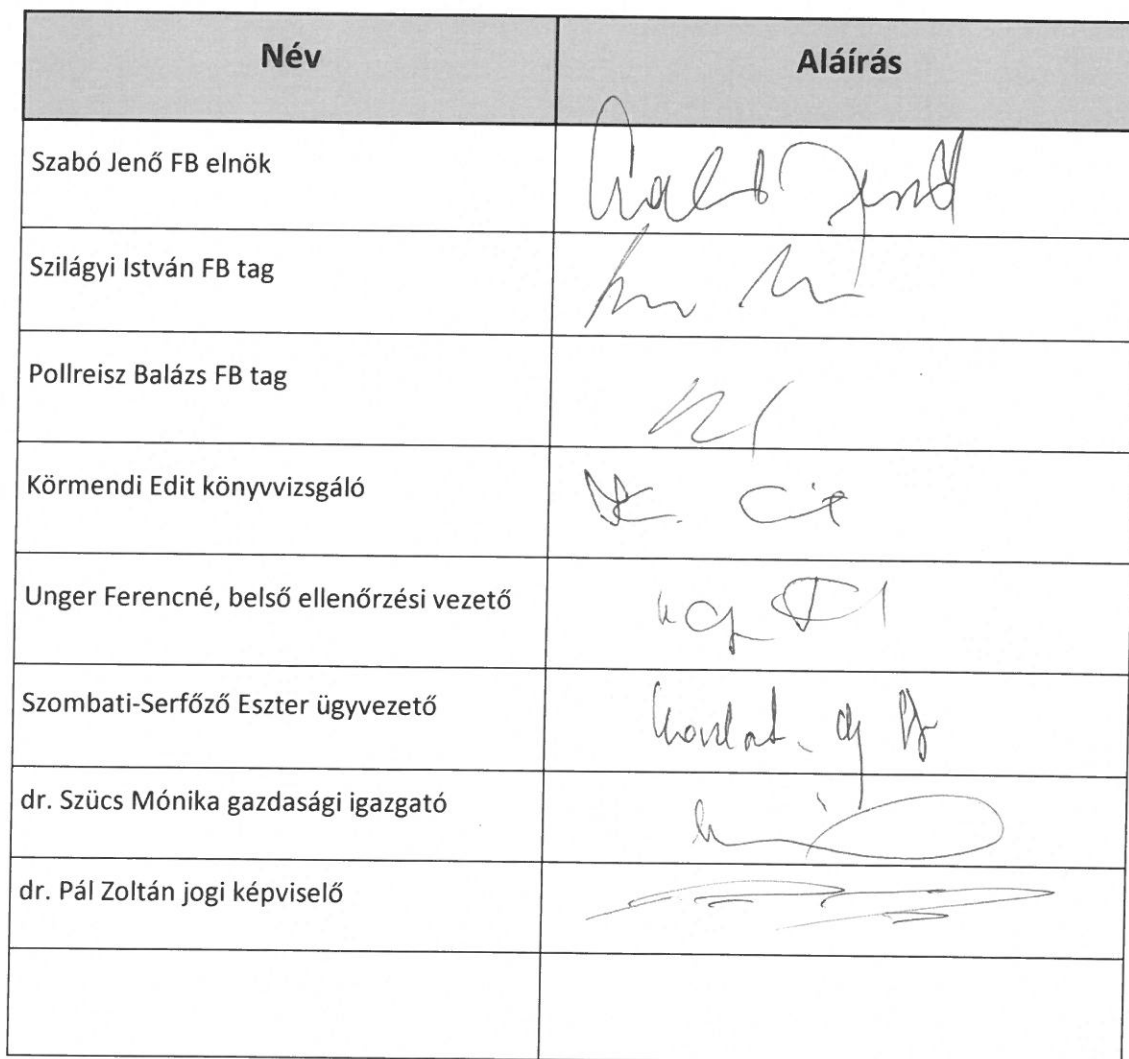 Név Aláírás
Szabó Jenő FB elnök Szabó Jenő
Szilágyi István FB tag
Pollreisz Balázs FB tag
Körmendi Edit könyvvizsgáló
Unger Ferencné, belső ellenőrzési vezető
Szombati-Serfőző Eszter ügyvezető
dr. Szücs Mónika gazdasági igazgató
dr. Pál Zoltán jogi képviselő